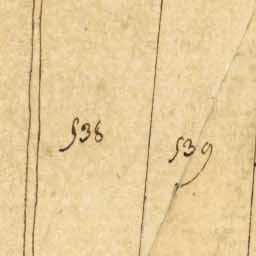 538
539